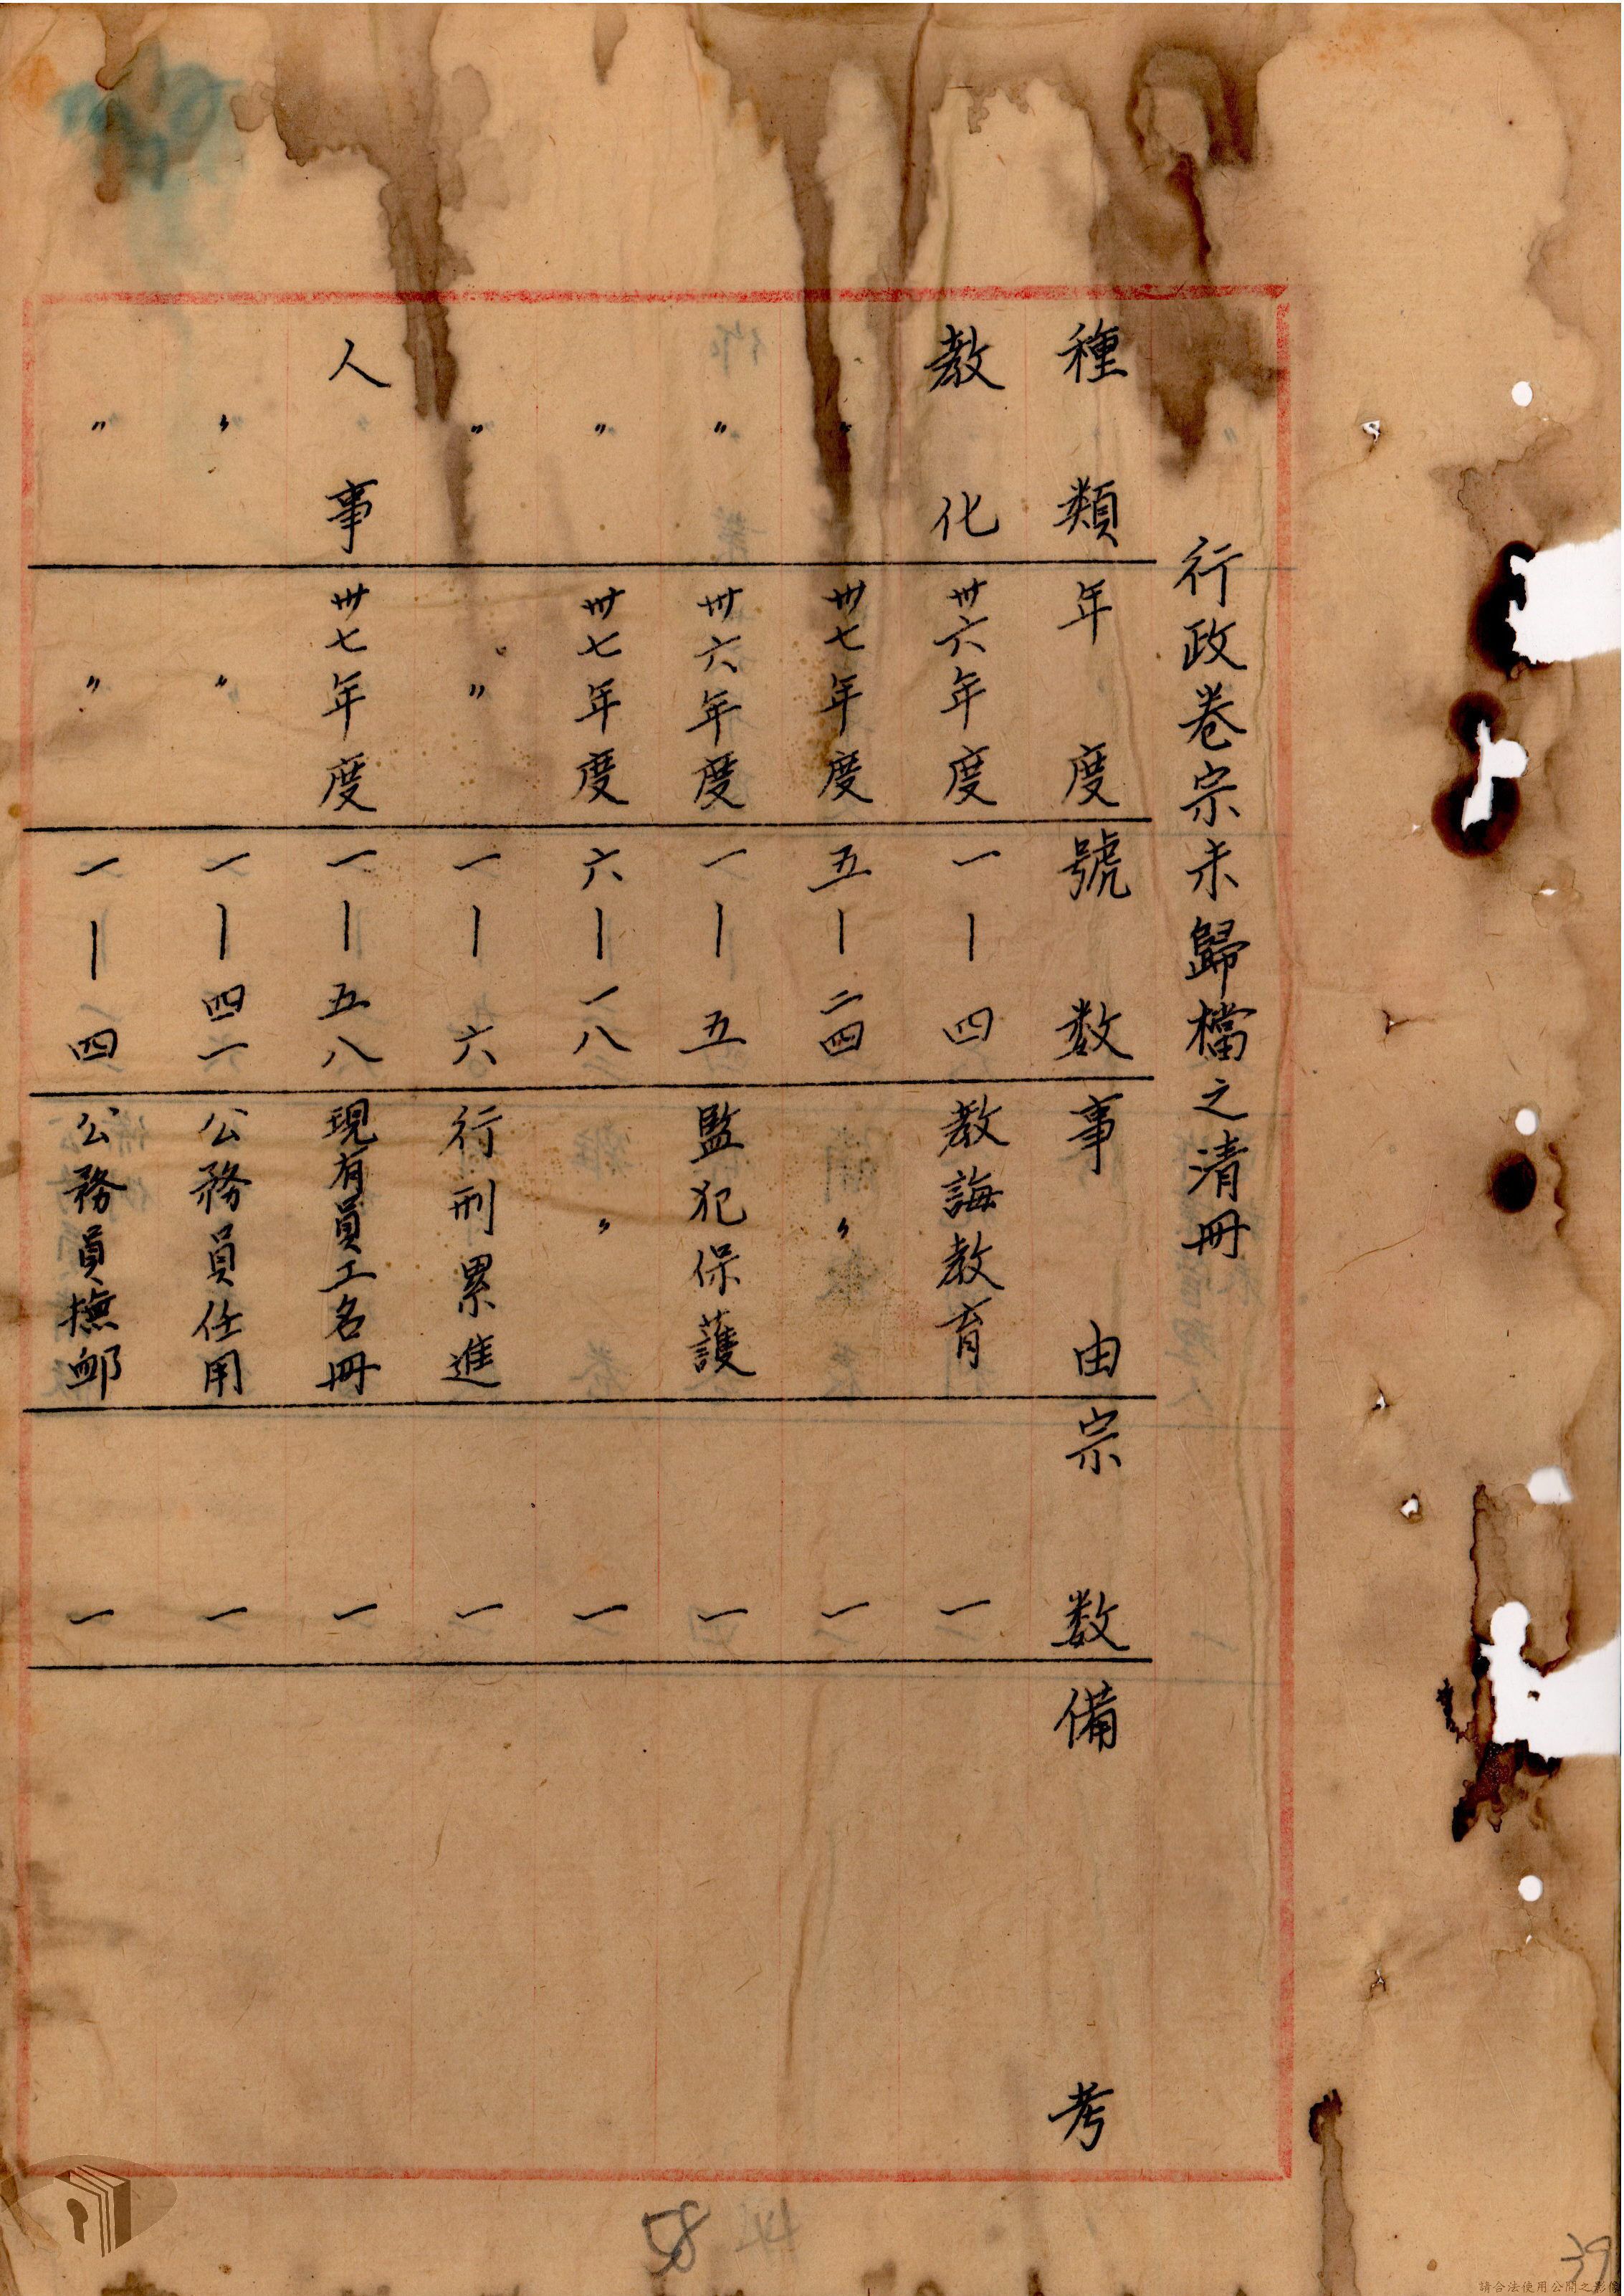 行政卷宗未歸檔之清冊
種類 年度 號數 事由 宗數 備考
教化 卅六年度 一—四 教誨教育 一
〃 卅七年度 五—二四 〃 一
〃 卅六年度 一—五 監犯保護 一
〃 卅七年度 六—一八 〃 一
〃 〃 一—六 行刑累進 一
人事 卅七年度 一—五八 現有員工名冊 一
〃 〃 一—四一 公務員任用 一
〃 〃 一—四 公務員撫卹 一
39
請合法使用公開之影像